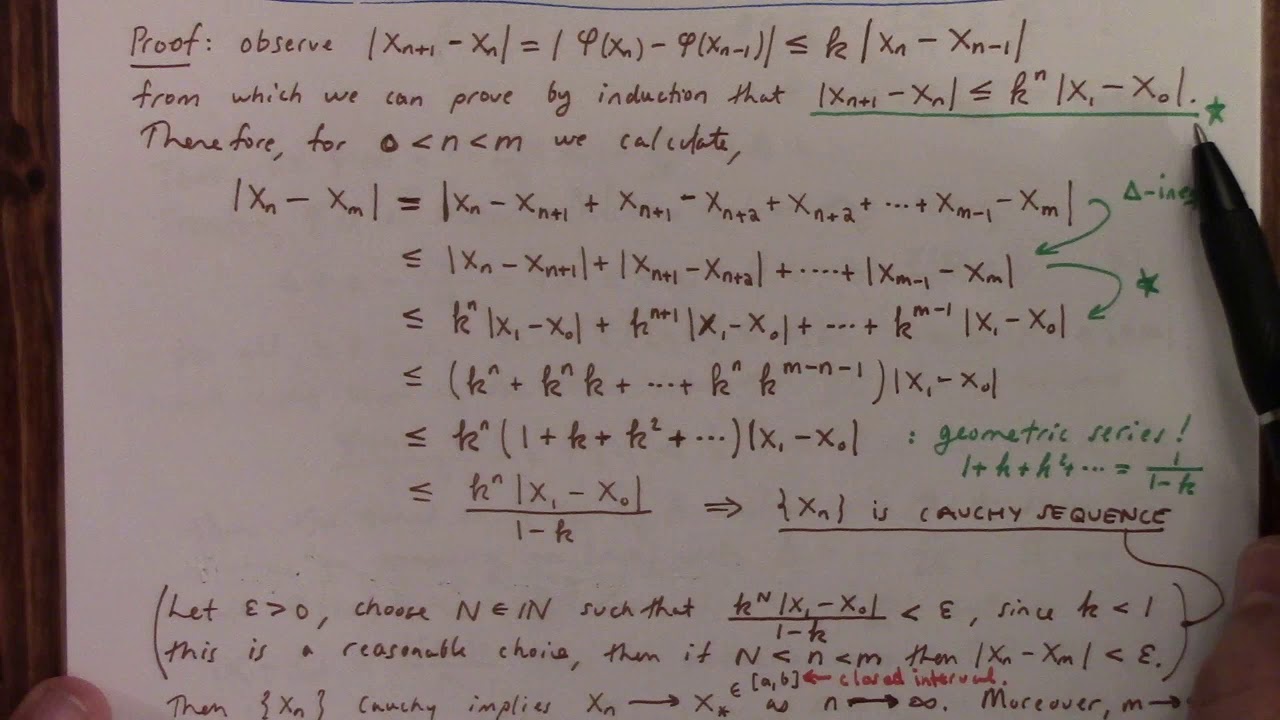 Proof: observe |Xn+1 - Xn| = | φ(Xn) - φ(Xn-1)| ≤ k |Xn - Xn-1|
from which we can prove by induction that |Xn+1 - Xn| ≤ k^n |X1 - X0|. ★
Therefore, for 0 < n < m we calculate,
|Xn - Xm| = |Xn - Xn+1 + Xn+1 - Xn+2 + Xn+2 + ··· + Xm-1 - Xm| Δ-ine
≤ |Xn - Xn+1| + |Xn+1 - Xn+2| + ····· + |Xm-1 - Xm| ★
≤ k^n |X1 - X0| + k^(n+1) |X1 - X0| + ··· + k^(m-1) |X1 - X0|
≤ (k^n + k^n k + ··· + k^n k^(m-n-1)) |X1 - X0|
≤ k^n (1 + k + k^2 + ···) |X1 - X0| : geometric series!
1 + k + k^2 + ··· = 1/(1-k)
≤ k^n |X1 - X0| / (1-k) ⇒ {Xn} is CAUCHY SEQUENCE
(Let ε > 0, choose N ∈ ℕ such that k^N |X1 - X0| / (1-k) < ε, since k < 1
this is a reasonable choice, then if N < n < m then |Xn - Xm| < ε.)
Then {Xn} Cauchy implies Xn → X* ∈ [a,b] ← closed interval. as n → ∞. Moreover, m →